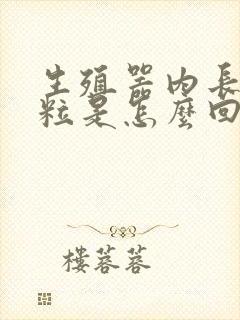 生殖器內長
粒是怎麼回
樓蓉蓉